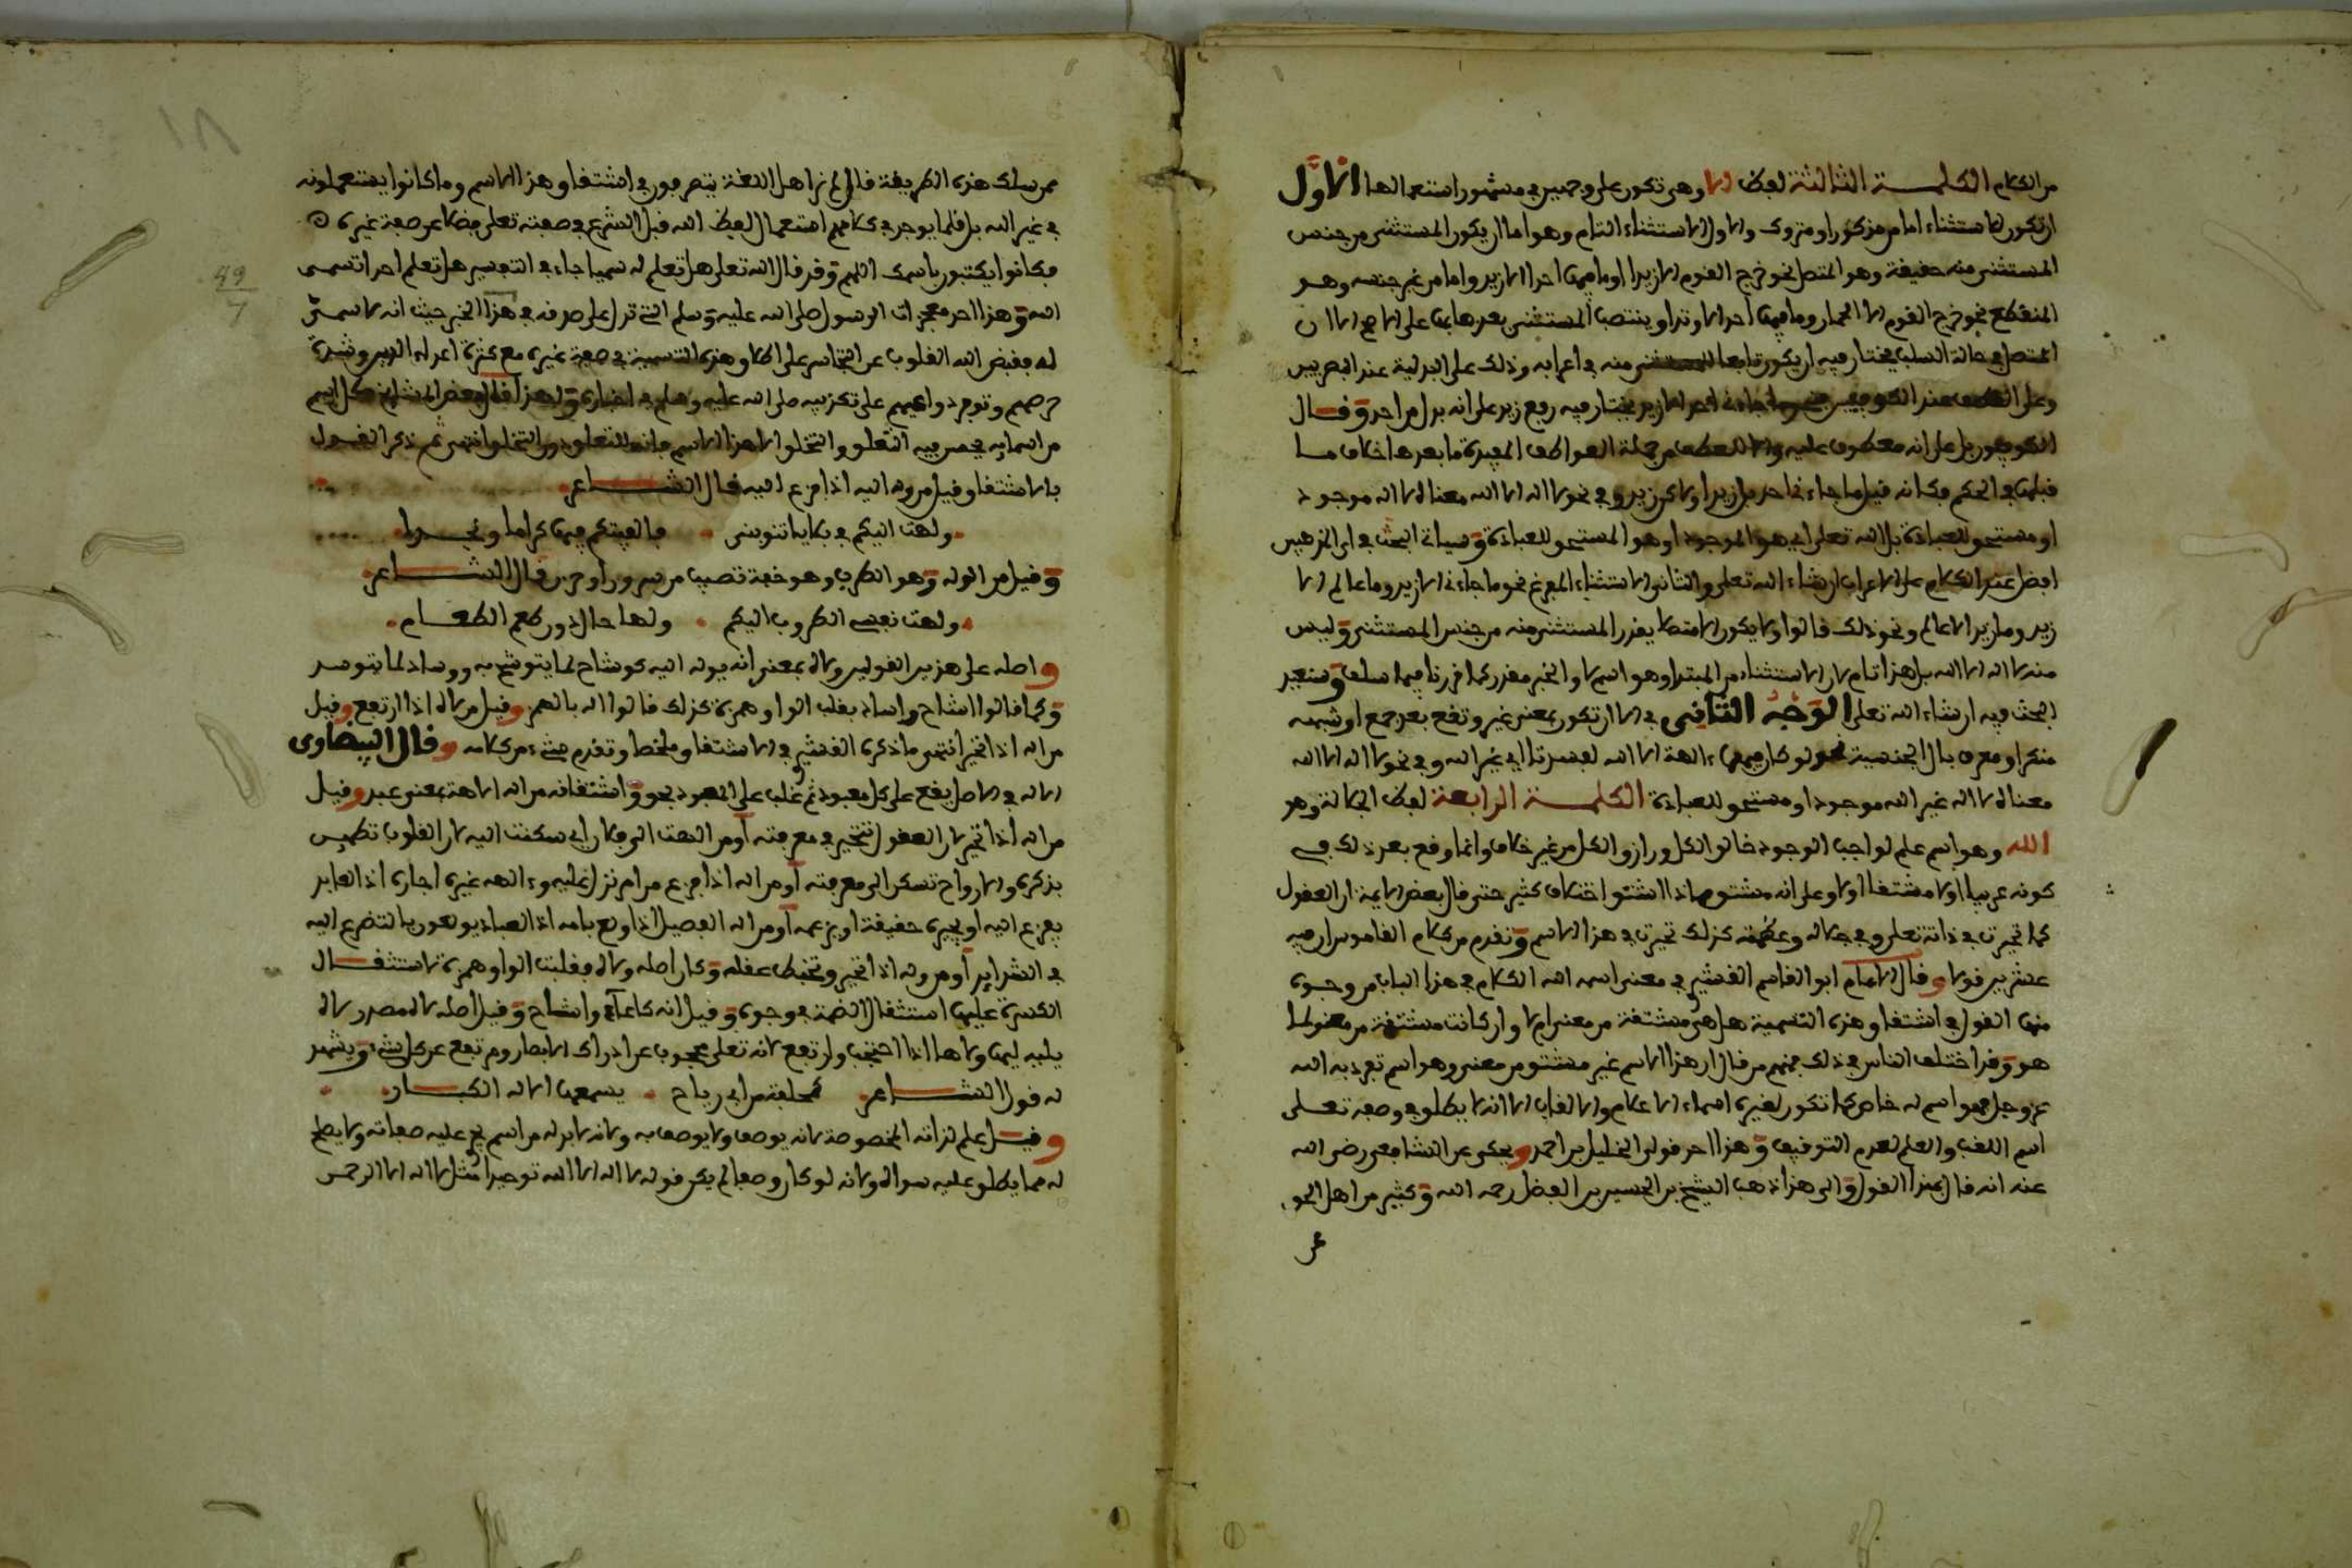 من الكلام الكلمة الثالثة لفظ الا وهى تكون على وجهين فى مشهور استعمالها الأوَّل
ان تكون للاستثناء اما من مذكور او متروك والاول الاستثناء التام وهو اما ان يكون المستثنى من جنس
المستثنى منه حقيقة وهو المتصل نحو خرج القوم الا زيدا او ما فيها احد الا زيد واما من غير جنسه وهو
المنقطع نحو خرج القوم الا الحمار وما فيها احد الا وتدا وينتصب المستثنى بعدها بها على الاصح الا ان
المتصل فى حالة السلب يختار فيه ان يكون تابعا للمستثنى منه فى اعرابه وذلك على البدلية عند البصريين
وعلى العطف عند الكوفيين ما جاءنى احد الا زيد يختار فيه رفع زيد على انه بدل من احد وقال
الكوفيون بل على انه معطوف عليه والا للعطف من جملة العواطف المفيدة ما بعدها خلاف ما
قبلها فى الحكم فكانه قيل ما جاءنى احد بل زيد او لاكن زيد وفى نحو لا اله الا الله معناه لا اله موجود
او مستحق للعبادة بل الله تعلى اى هو الموجود او هو المستحق للعبادة وسياتى البحث فى اى المذهبين
افضل عند الكلام على الاعراب ان شاء الله تعلى والثانى الاستثناء المفرغ نحو ما جاءنى الا زيد وما عالم الا
زيد وما زيد الا عالم ونحو ذلك قالوا ولا يكون الا متصلا يقدر المستثنى منه من جنس المستثنى وليس
منه لا اله الا الله بل هذا تام لان الاستثناء من المبتدا وهو اسم لا والخبر مقدر كما قررنا فيما سلف وسنعيد
البحث فيه ان شاء الله تعلى الوَجْهُ الثَّانِى فى الا ان تكون بمعنى غير وتقع بعد جمع او شبهه
منكر او معرف بال الجنسية نحو لو كان فيهما ءالهة الا الله لفسدتا اى غير الله وفى نحو لا اله الا الله
معناه لا اله غير الله موجود او مستحق للعبادة الكلمة الرابعة لفظ الجلالة وهو
الله وهو اسم علم لواجب الوجود خالق الكل ورازق الكل من غير خلاف وانما وقع بعد ذلك فى
كونه عربيا او لا مشتقا او لا وعلى انه مشتق مماذا اشتق اختلاف كثير حتى قال بعض الايمة ان العقول
كما تحيرت فى ذاته تعلى وفى جلاله وعظمته كذلك تحيرت فى هذا الاسم وتقدم من كلام القاموس ان فيه
عشرين قولا وقال الامام ابو القاسم القشيرى فى معنى اسمه الله الكلام فى هذا الباب من وجوه
منها القول فى اشتقاق هذه التسمية هل هى مشتقة من معنى ام لا وان كانت مشتقة من معنى فما
هو وقد اختلف الناس فى ذلك فمنهم من قال ان هذا الاسم غير مشتق من معنى وهو اسم تفرد به الله
عز وجل فهو اسم له خاص كما تكون لغيره اسماء الاعلام والالقاب الا انه لا يطلق فى وصفه تعلى
اسم اللقب والعلم لعدم التوقيف وهذا احد قولى الخليل بن احمد ويحكى عن الشافعى رضى الله
عنه انه قال بهذا القول والى هذا ذهب الشيخ بن الحسين بن الفضل رحمه الله وكثير من اهل الحق
ممن سلك هذه الطريقة قال لم نر اهل اللغة يتصرفون فى اشتقاق هذا الاسم وما كانوا يستعملونه
فى غير الله بل قلما يوجد فى كلامهم استعمال لفظ الله قبل الشرع فى صفته تعلى فضلا عن صفة غيره
فكانوا يكتبون باسمك اللهم وقد قال الله تعلى هل تعلم له سميا جاء فى التفسير هل تعلم احدا تسمى
الله وهذا احد معجزات الرسول صلى الله عليه وسلم التى تدل على صدقه فى هذا الخبر حيث انه لا سمىّ
له فقبض الله القلوب عن التجاسر على اطلاق هذه التسمية فى صفة غيره مع كثرة اعداء الدين وشدة
حرصهم وتوفر دواعيهم على تكذيبه صلى الله عليه وسلم فى اخباره ولهذا قال بعض المشايخ كل اسم
من اسمايه يحصر فيه التعلق والتخلق الا هذا الاسم فانه للتعلق دون التخلق انتهى ثم ذكر القول
بالاشتقاق وقيل من وله اليه اذا فزع اليه قال الشاعر
ولهت اليكم فى بلايا تنوبنى فالفيتكم فيها كراما
وقيل من الوله وهو الطرب وهو خفة تصيب من سرور او حزن قال الشاعر
ولهت نفسى الطروب اليكم ولها حال دون طعم الطعام
واصله على هذين القولين ولاه بمعنى انه يوله اليه كوشاح لما يتوشح به ووساد لما يتوسد
وكما قالوا اشاح واساد بقلب الواو همزة كذلك قالوا اله بالهمز وقيل من لاه اذا ارتفع وقيل
من اله اذا تحير انتهى ما ذكره القشيرى فى الاشتقاق ملخصا وتقدم شىء من كلامه وقال البيضاوى
الاله فى الاصل يقع على كل معبود ثم غلب على المعبود بحق واشتقاقه من اله الاهة بمعنى عبد وقيل
من اله اذا تحير لان العقول تتحير فى معرفته او من الهت الى فلان اى سكنت اليه لان القلوب تطمئن
بذكره والارواح تسكن الى معرفته او من اله اذا فزع من امر نزل عليه وءالهه غيره اجاره اذ العايذ
يفزع اليه او يجيره حقيقة او بزعمه او من اله الفصيل اذا ولع بامه اذ العباد يولعون بالتضرع اليه
فى الشدايد او من وله اذا تحير وتخبط عقله وكان اصله ولاه فقلبت الواو همزة لاستثقال
الكسرة عليها استثقال الضمة فى وجوه وقيل انه كاعاء واشاح وقيل اصله لاه مصدر لاه
يليه ليها ولاها اذا احتجب وارتفع لانه تعلى محجوب عن ادراك الابصار ومرتفع عن كل شىء ويشهد
له قول الشاعر كحلفة من ابى رياح يسمعها الاله الكبار
وقيل علم لذاته المخصوصة لانه يوصف ولا يوصف به ولانه لا بد له من اسم تجرى عليه صفاته ولا يصلح
له مما يطلق عليه سواه ولانه لو كان وصفا لم يكن قوله لا اله الا الله توحيدا مثل لا اله الا الرحمن